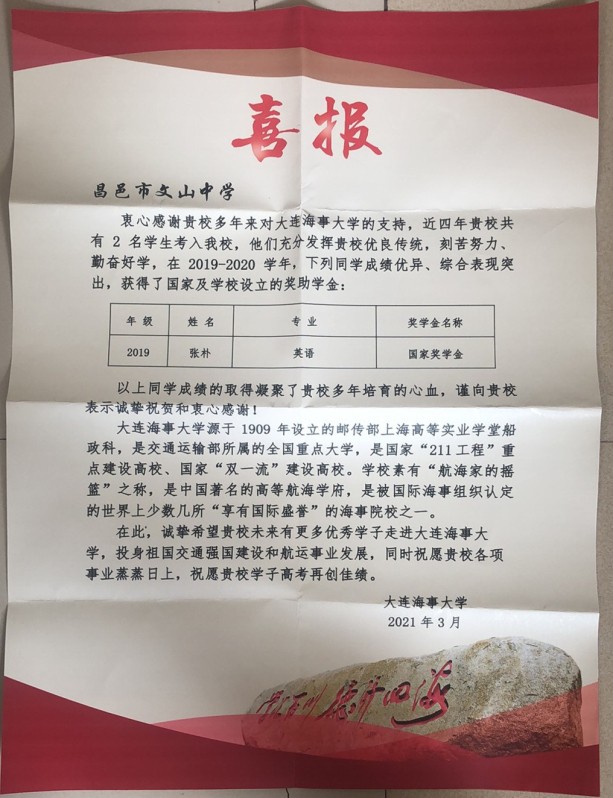 喜报
昌邑市文山中学
衷心感谢贵校多年来对大连海事大学的支持，近四年贵校共
有 2 名学生考入我校，他们充分发挥贵校优良传统，刻苦努力、
勤奋好学，在 2019-2020 学年，下列同学成绩优异、综合表现突
出，获得了国家及学校设立的奖助学金：
年 级 姓 名 专 业 奖学金名称
2019 张朴 英语 国家奖学金
以上同学成绩的取得凝聚了贵校多年培育的心血，谨向贵校
表示诚挚祝贺和衷心感谢！
大连海事大学源于 1909 年设立的邮传部上海高等实业学堂船
政科，是交通运输部所属的全国重点大学，是国家“211 工程”重
点建设高校、国家“双一流”建设高校。学校素有“航海家的摇
篮”之称，是中国著名的高等航海学府，是被国际海事组织认定
的世界上少数几所“享有国际盛誉”的海事院校之一。
在此，诚挚希望贵校未来有更多优秀学子走进大连海事大
学，投身祖国交通强国建设和航运事业发展，同时祝愿贵校各项
事业蒸蒸日上，祝愿贵校学子高考再创佳绩。
大连海事大学
2021 年 3 月
四海